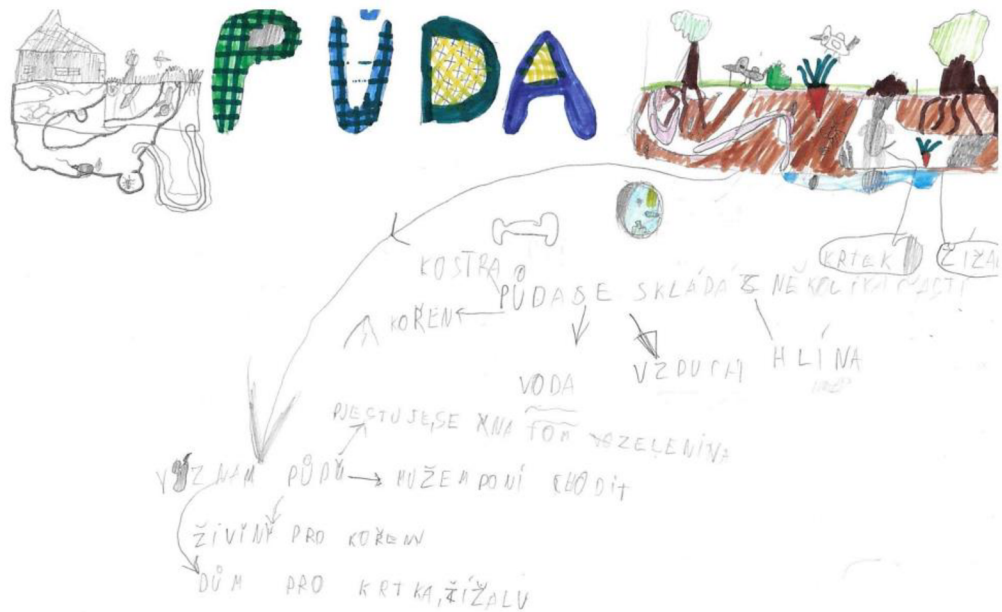 PŮDA
KRTEK
ŽÍŽAL
KOSTRA
PŮDA SE SKLÁDÁ Z NĚKOLIKA ČÁSTÍ
KOŘEN
VODA
VZDUCH
HLÍNA
PJESTUJE SE NA TOM ZELENINA
VÝZNAM PŮDY
MUŽEM PO NÍ CHODIT
ŽIVINY PRO KOŘENY
DŮM PRO KRTKA, ŽÍŽALU